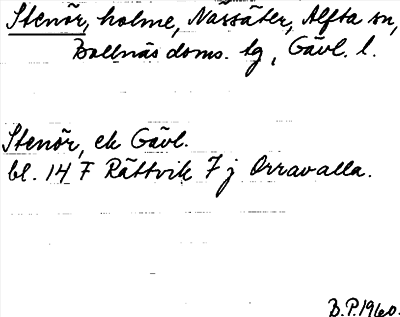 Stenör, holme, Nassäter, Alfta sn,
Bollnäs doms. tg, Gävl. l.
Stenör, ek Gävl.
bl. 14 F Rättvik 7 j Orravalla.
B.P. 1960.